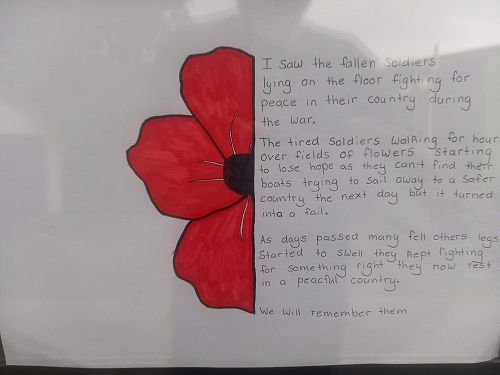 I saw the fallen soldiers
lying on the floor fighting for
peace in their country during
the war.
The tired soldiers walking for hour
over fields of flowers starting
to lose hope as they can't find their
boats trying to sail away to a safer
country the next day but it turned
into a fail.
As days passed many fell others legs
started to swell they kept fighting
for something right they now rest
in a peaceful country.
We will remember them